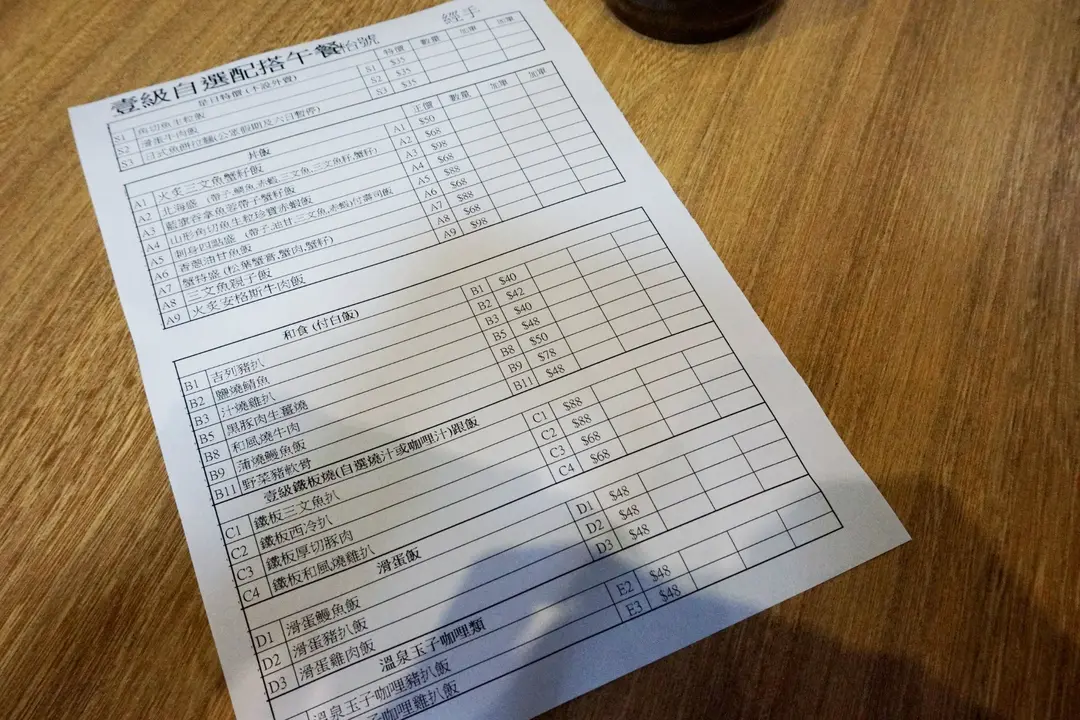 經手
壹級自選配搭午餐 枱號
是日特價 (不設外賣) 特價 數量 加單 加單
S1 角切魚生粒飯 S1 $35
S2 滑蛋牛肉飯 S2 $35
S3 日式魚餅拉麵(公眾假期及六日暫停) S3 $35
丼飯 正價 數量 加單 加單
A1 火炙三文魚蟹籽飯 A1 $50
A2 北海盛 (帶子,鯛魚,赤蝦,三文魚,三文魚籽,蟹籽) A2 $68
A3 藍鰭吞拿魚蓉帶子蟹籽飯 A3 $98
A4 山形角切魚生粒珍寶赤蝦飯 A4 $68
A5 刺身四點盛 (帶子,油甘,三文魚,赤蝦)付壽司飯 A5 $88
A6 香蔥油甘魚飯 A6 $68
A7 蟹特盛 (松葉蟹膏,蟹肉,蟹籽) A7 $88
A8 三文魚親子飯 A8 $68
A9 火炙安格斯牛肉飯 A9 $98
和食 (付白飯)
B1 吉列豬扒 B1 $40
B2 鹽燒鯖魚 B2 $42
B3 汁燒雞扒 B3 $40
B5 黑豚肉生薑燒 B5 $48
B8 和風燒牛肉 B8 $50
B9 蒲燒鰻魚飯 B9 $78
B11 野菜豬軟骨 B11 $48
壹級鐵板燒(自選燒汁或咖哩汁)跟飯
C1 鐵板三文魚扒 C1 $88
C2 鐵板西冷扒 C2 $88
C3 鐵板厚切豚肉 C3 $68
C4 鐵板和風燒雞扒 C4 $68
滑蛋飯
D1 滑蛋鰻魚飯 D1 $48
D2 滑蛋豬扒飯 D2 $48
D3 滑蛋雞肉飯 D3 $48
溫泉玉子咖哩類
溫泉玉子咖哩豬扒飯 E2 $48
玉子咖哩雞扒飯 E3 $48